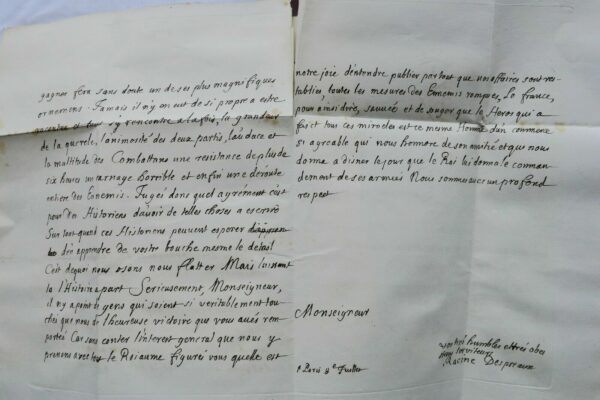 gagner sera sans doute un de ses plus magnifiques
ornemens. Jamais il n'y en eut de si propre a estre
tout s'y rencontre a la fois, la grandeur
de la querele, l'animosité des deux partis, l'audace et
la multitude des Combattans une resistance de plus de
six heures un carnage horrible et enfin une déroute
entiere des Ennemis. Jugés donc quel agrément c'est
pour des Historiens d'avoir de telles choses a escrire
Sur tout quand ces Historiens peuvent esperer
d'en apprendre de vostre bouche mesme le detail
C'est dequoi nous osons nous flatter Mais laissant
la l'Histoire apart Serieusement, Monseigneur,
il n'y a point de gens qui soient si veritablement tou-
chés que nous de l'heureuse victoire que vous avés rem-
portée Car sans conter l'interest general que nous y
prenons avec tout le Roiaume figurés vous quelle est
notre joie d'entendre publier par tout que nos affaires sont res-
tablies, toutes les mesures des Ennemis rompues, la france,
pour ainsi dire, sauvée et de songer que le Heros qui a
fait tous ces miracles est ce mesme Homme d'un commerce
si agreable qui nous honnore de son amitié et qui nous
donna a disner le jour que le Roi lui donna le comman-
dement de ses armées Nous sommes avec un profond
respect
Monseigneur
A Paris 8e Juillet
vos trés humbles et trés obeis
Racine Despreaux